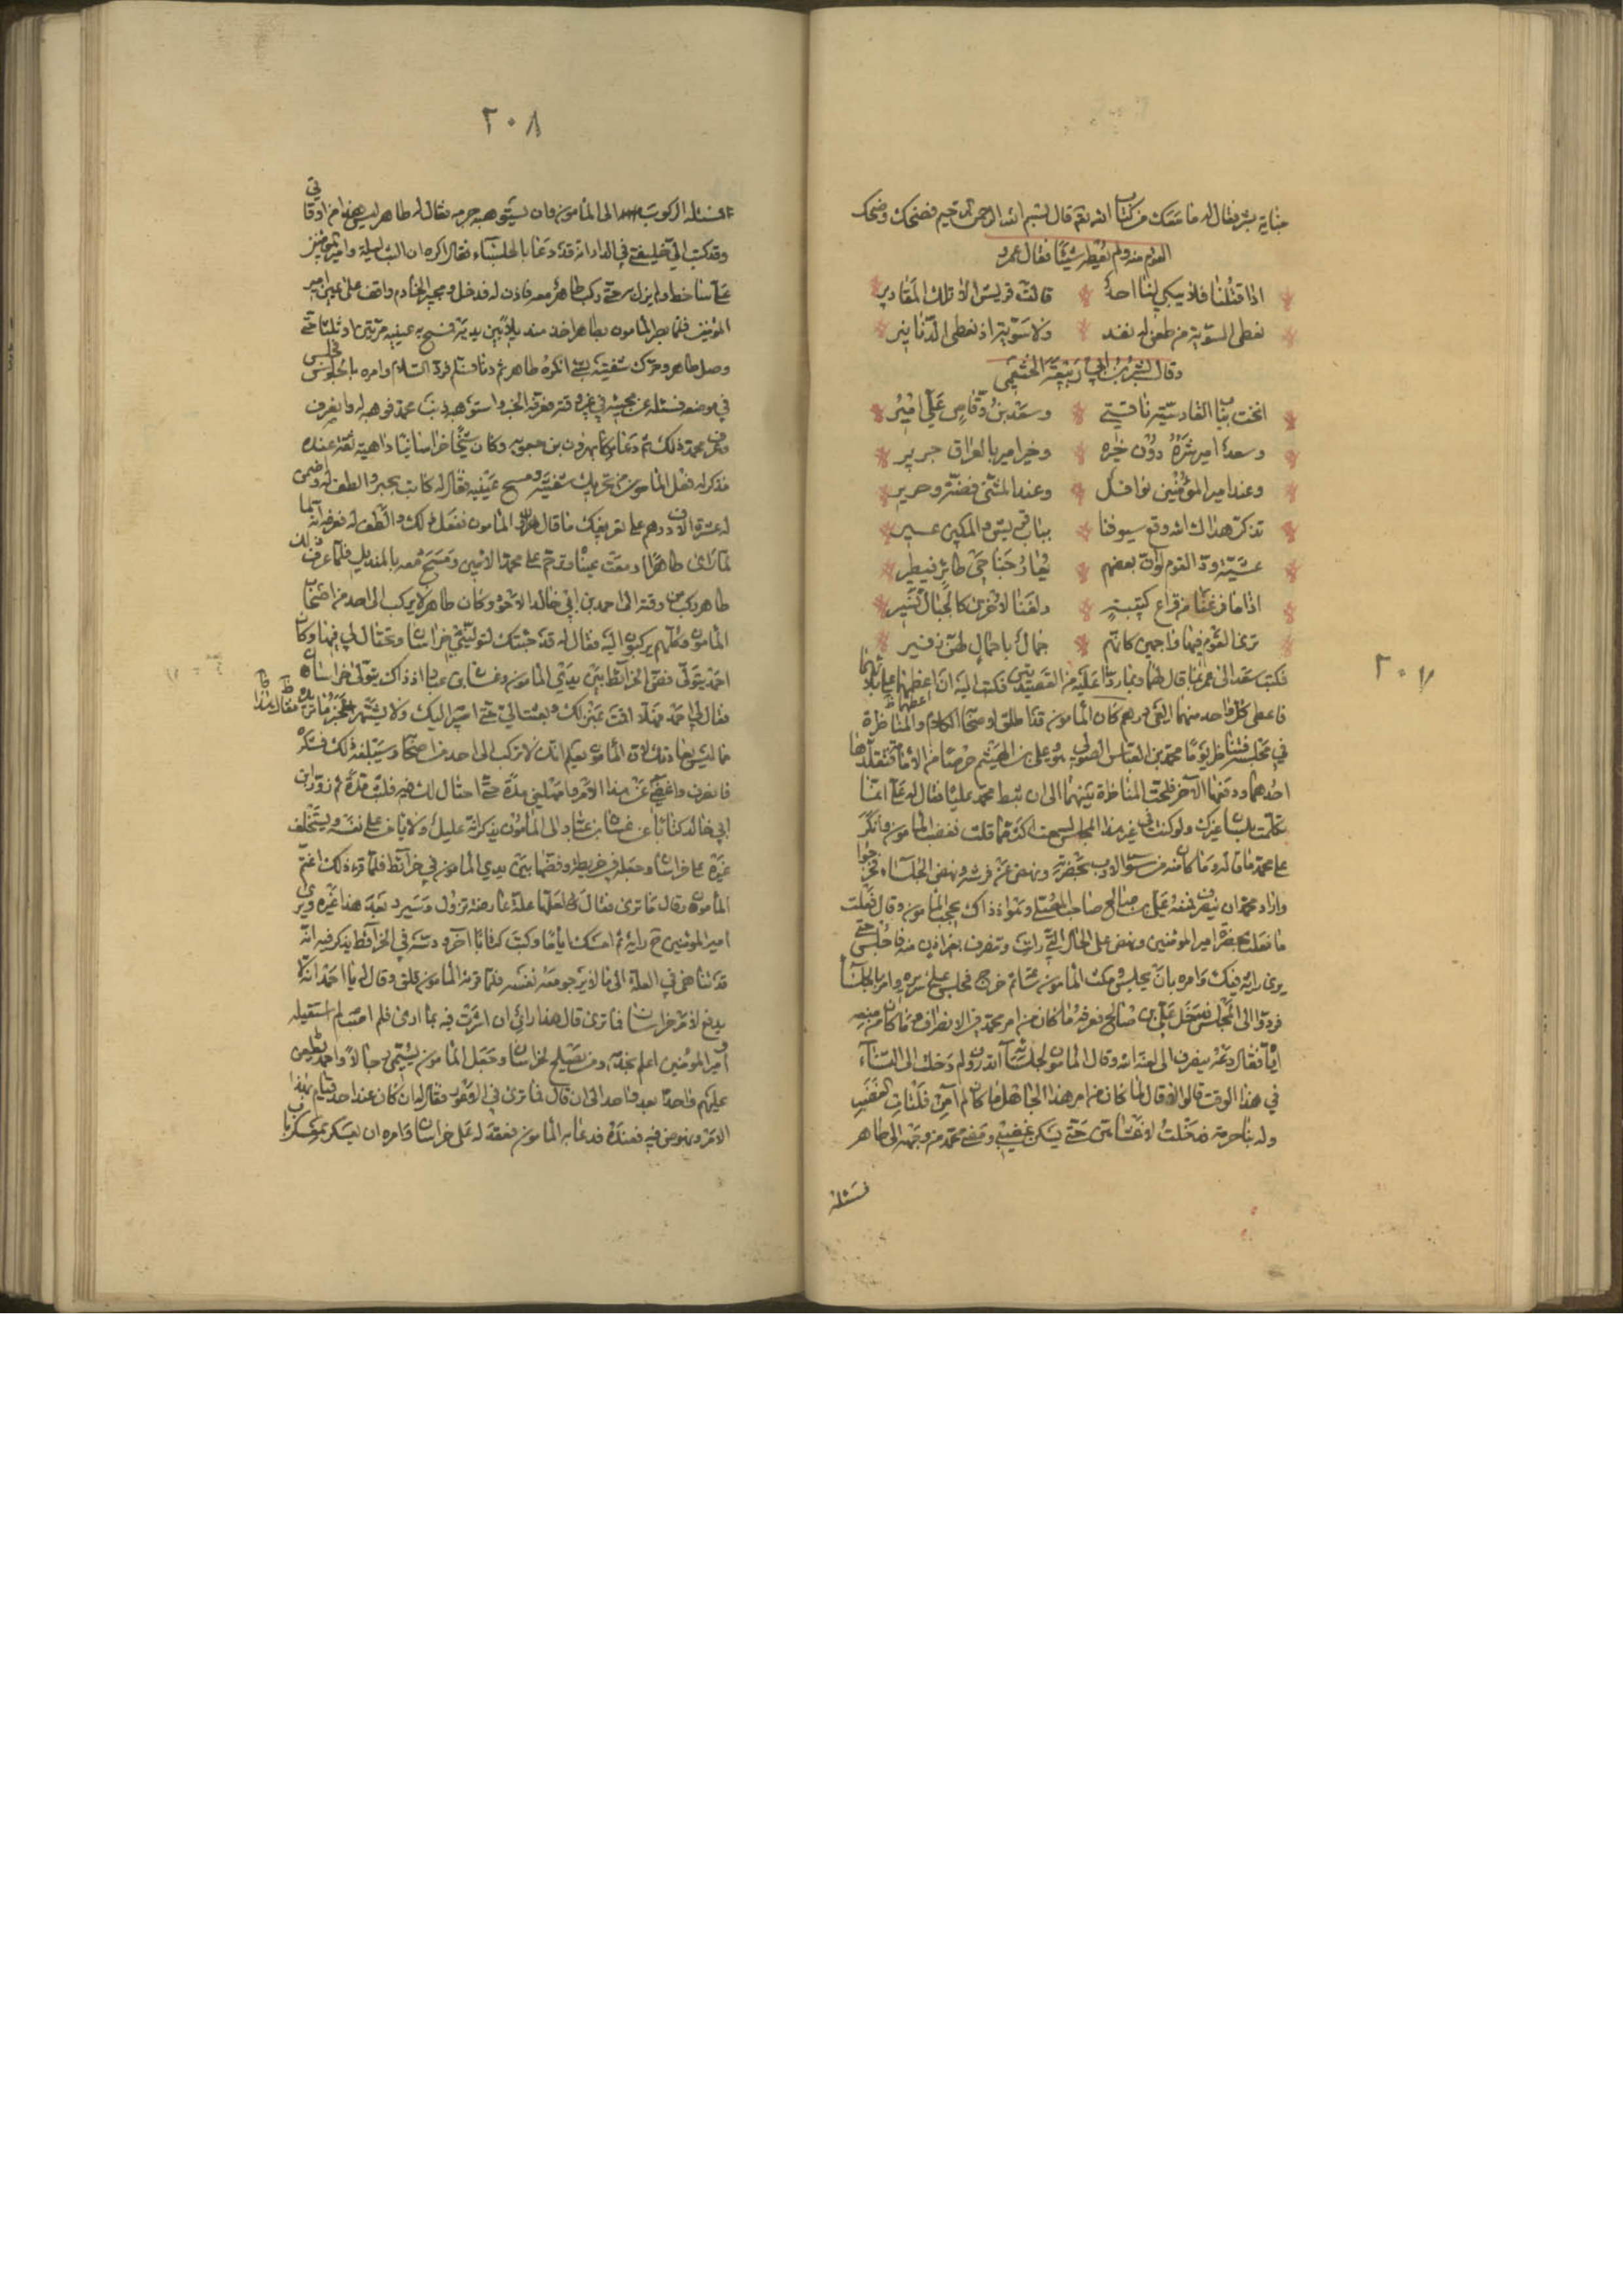 ٢٠٧
جناية بشر فقال له ما معك من كتاب الله تعم قال بسم الله الرحمن الرحيم فضحك وضحك
القوم منه ولم يعطه شيئا فقال عمرو
اذا قتلنا فلا يبكي لنا احد قالت قريش الا تلك المقادير
نعطى السوية من طعن له نفد ولا سوية اذ نعطى الدنانير
وقال بشر بن ابي ربيعة الخثعمي
انخت بباب القادسية ناقتي وسعد بن وقاص علي امير
وسعد امير شره دون خيره وخير امير بالعراق جرير
وعند امير المؤمنين نوافل وعند المثنى فضة وحرير
تذكر هداك الله وقع سيوفنا بباب قديس والمكر عسير
عشية ود القوم لو ان بعضهم يعار جناحي طائر فيطير
اذا ما فرغنا من قراع كتيبة دلفنا لاخرى كالجبال تسير
ترى القوم فيها واجمين كانهم جمال باحمال لهن زفير
فكتب سعد الى عمر بما قال لهما وبما ردا عليه من القصيدتين فكتب اليه ان اعطهما على بلائهما
فاعطى كل واحد منهما الفي درهم كان المامون قد اطلق لاصحابه الكلام والمناظرة
في مجلسه فناظر يوما محمد بن العباس الصولي علي بن الهيثم
احدهما ودفعها الآخر فلجت المناظرة بينهما الى ان نبط محمد عليا فقال له علي انما
تكلمت بلسان غيرك ولو كنت في غير هذا المجلس لسمعت اكثر مما قلت فغضب المامون وانكر
على محمد ما قاله وما كان منه من سوء الادب بحضرته ونهض عن فرشه ونهض الجلساء فخرجوا
واراد محمد ان ينصرف فمنعه علي بن صالح صاحب المصلى وهو اذ ذاك يحجب المامون وقال فعلت
ما فعلت بحضرة امير المؤمنين ونهض على الحال التي رايت وتنصرف بغير اذن منه فاجلس حتى
يرى رايه فيك وامره بان يجلس ومكث المامون ثم خرج فجلس على سريره وامر بالجلساء
فردوا الى المجلس فدخل علي بن صالح فعرفه ما كان من امر محمد في الانصراف وما كان من منعه
اياه فقال دعه ينصرف الى لعنة الله وقال المامون لجلسائه اتدرون لم دخلت الى النساء
في هذا الوقت قالوا لا قال لما كان من امر هذا الجاهل ما كان لم آمن فلتات الغضب
وله بنا حرمة فدخلت لا حتى يسكن غضبي ومضى محمد من وجهه الى طاهر
فسئله
٢٠٨
فسئله الركوب الى المامون وان يستوهبه جرمه فقال له طاهر ليس هذا من اوقاتي
وقد كتب الي خليفتي في الدار انه قد دعا بالجلساء فقال اكره ان ابيت ليلة وامير المؤمنين
علي ساخط ولم يزل به حتى ركب طاهر معه فاذن له فدخل ومحمد الخادم واقف على امير
المؤمنين فلما بصر المامون بطاهر اخذ منديلا بين يديه فمسح به عينيه مرتين او ثلاثا حتى
وصل طاهر وحرك شفتيه بشئ انكره طاهر ثم دنا فسلم فرد السلام وامره بالجلوس فجلس
في موضعه فسئله عن مجيئه في غير وقته فعرفه الخبر واستوهبه ذنب محمد فوهبه له وانصرف
وعرف محمد ذلك ثم دعا هرون بن وكان شيخا خراسانيا داهية ثقة عنده
فذكر له فعل المامون من تحريك شفتيه ومسح عينيه فقال له كاتب والطف له واضمن
له عشرة الاف درهم على تعريفك ما قال المامون ففعل ذلك والطف له فعرفه انه لما
راى طاهرا دمعت عيناه وترحم على محمد الامين ومسح دمعه بالمنديل فلما عرف ذلك
طاهر ركب من وقته الى احمد بن ابي خالد الاحول وكان طاهر لا يركب الى احد من اصحاب
المامون وكلهم يركبون اليه فقال له قد جئتك لتوليني خراسان وتحتال لي فيها وكان
احمد يتولى فض الخرائط بين يدي المامون وغسان بن عباد اذ ذاك يتولى خراسان
فقال له احمد هلا اقمت بمنزلك وبعثت الي حتى اسير اليك ولا يشتهر الخبر
بما ليس بعادتك لان المامون يعلم انك لا تركب الى احد من اصحابه وسيبلغه ذلك فينكره
فانصرف واغض عن هذا الامر وامهلني مدة حتى احتال لك فيه فلبث مدة ثم زور ابن
ابي خالد كتابا عن غسان بن عباد الى المامون يذكر انه عليل وانه لا يامن على نفسه ويستخلف
غيره على خراسان وجعله في خريطة وفضها بين يدي المامون في خرائط فلما قرء ذلك اغتم
المامون وقال ما ترى فقال لعلها علة عارضة تزول وسيرد بعد هذا غيره ويرى
امير المؤمنين رايه ثم امسك اياما وكتب كتابا آخر ودسه في الخرائط يذكر فيه انه
قد تناهى في العلة الى ما لا يرجو معه نفسه فلما قرئه المامون قلق وقال له يا احمد انه لا
مدفع لامر خراسان فما ترى قال هذا راي ان اشرت فيه بما ارى فلم اصب لم استقيله
وامير المؤمنين اعلم بخدمه ومن يصلح لخراسان وجعل المامون يسمي رجالا واحمد يطعن
عليهم واحدا بعد واحد الى ان قال فما ترى في الاعور فقال له ان كان عند احد قيام بهذا
الامر ونهوض فيه فعنده فدعا به المامون فعقد له على خراسان وامره ان يعسكر